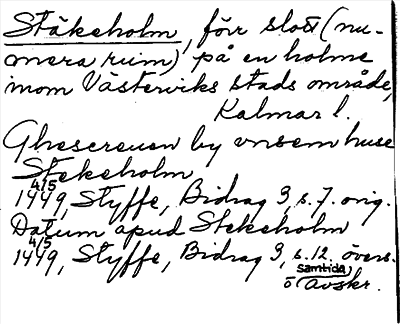 Stäkeholm, förr slott (nu-
mera ruin) på en holme
inom Västerviks stads område,
Kalmar l.
Ghescreuen by vnsem huse
Stekeholm
4/5
1449, Styffe, Bidrag 3, s. 7. orig.
Datum apud Stekeholm
4/5
1449, Styffe, Bidrag 3, s. 12. övers.
samtida
o avskr.